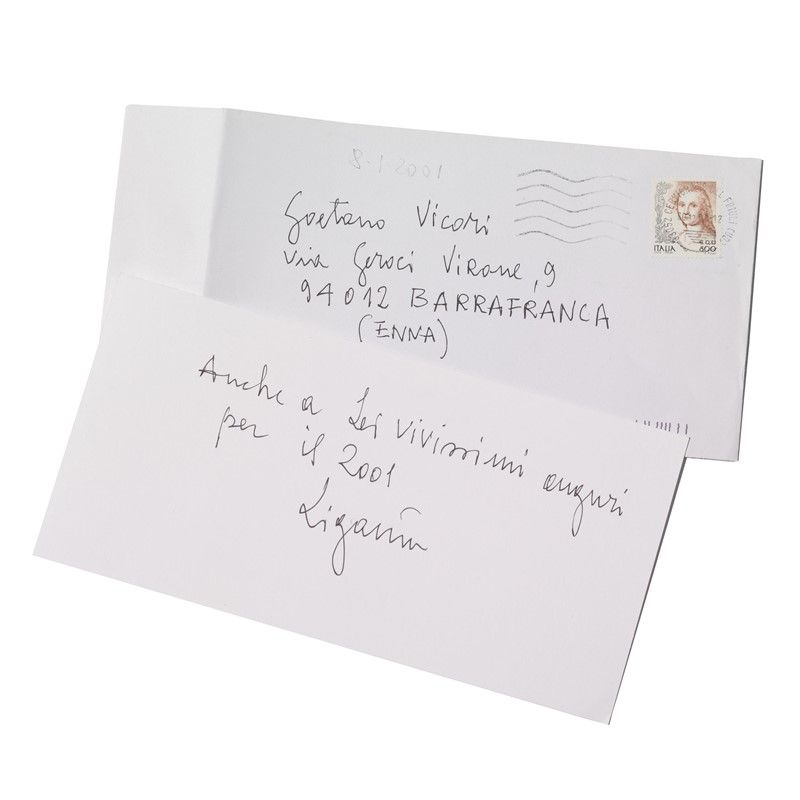 8-1-2001
Gaetano Vicari
Via Geraci Virone, 9
94012 BARRAFRANCA
(ENNA)
ITALIA
800
Anche a Lei vivissimi auguri
per il 2001